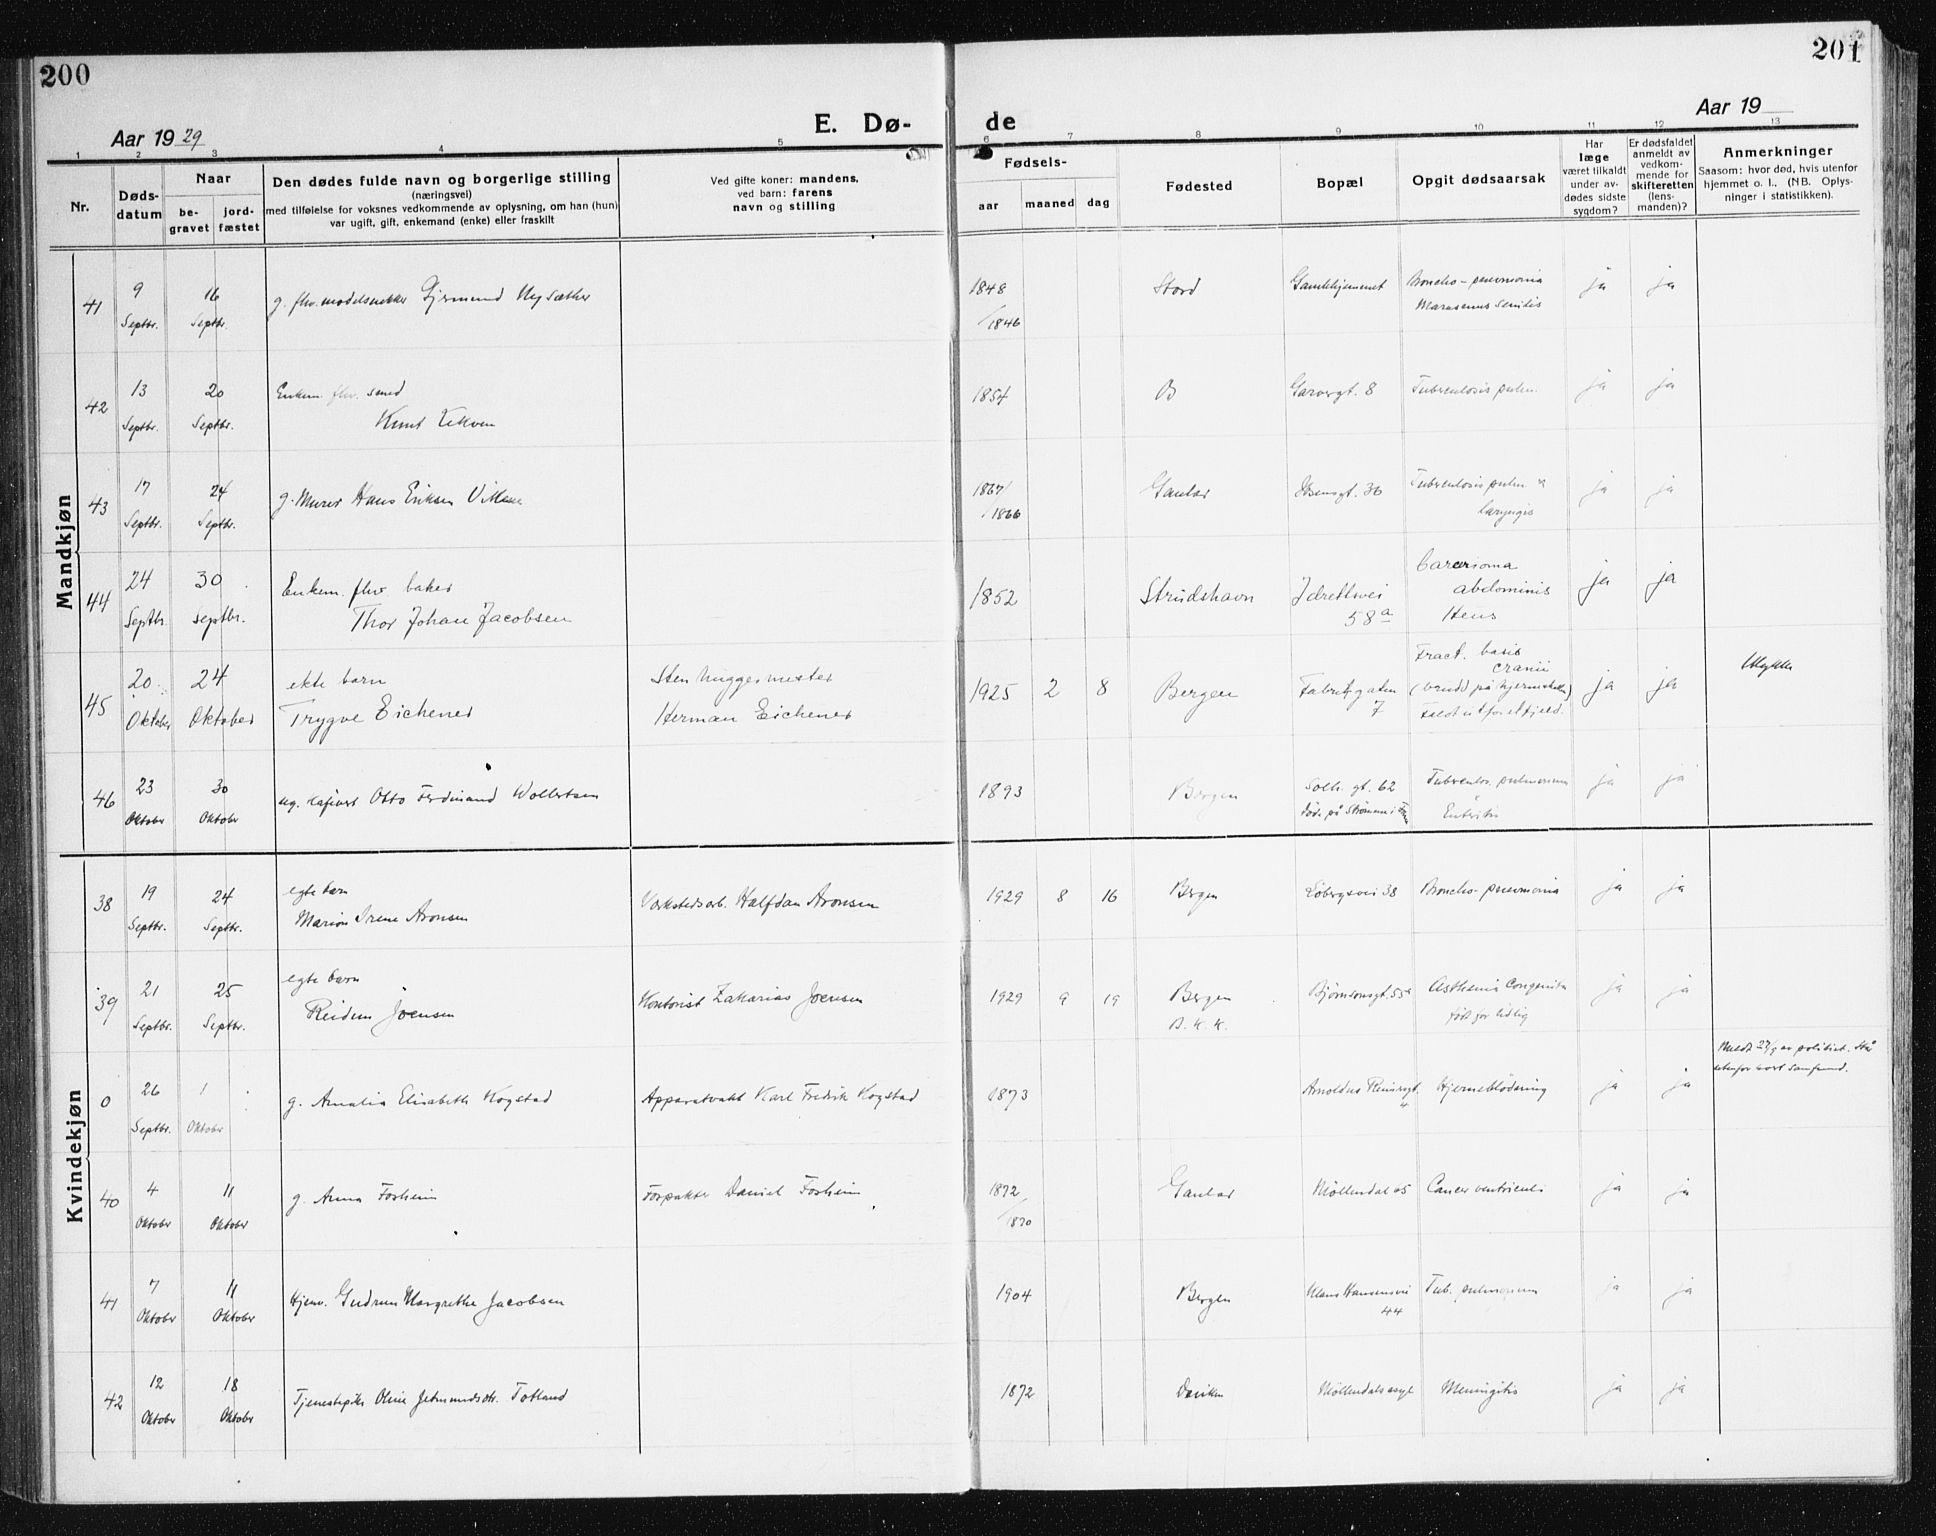 200
201
E. Dø-
de
Aar 1929
Aar 19
1 2 3 4 5 6 7 8 9 10 11 12 13
Nr.
Døds-
datum
Naar
be-
gravet
jord-
fæstet
Den dødes fulde navn og borgerlige stilling
(næringsvei)
med tilføielse for voksnes vedkommende av oplysning, om han (hun)
var ugift, gift, enkemand (enke) eller fraskilt
Ved gifte koner: mandens,
ved barn: farens
navn og stilling
Fødsels-
aar maaned dag
Fødested
Bopæl
Opgit dødsaarsak
Har
læge
været tilkaldt
under av-
dødes sidste
sygdom?
Er dødsfaldet
anmeldt av
vedkom-
mende for
skifteretten
(lens-
manden)?
Anmerkninger
Saasom: hvor død, hvis utenfor
hjemmet o. l., (NB. Oplys-
ninger i statistikken).
Mandkjøn
41 9 Septbr. 16 Septbr. g. fhv. modelsnekker Gjermund Nysæther 1848 /1846 Stord Gamlehjemmet Broncho-pneumonia
Marasmus senilis ja ja
42 13 Septbr. 20 Septbr. Enkem. fhv. smed
Knut Lekven 1854 B Garvergt. 8 Tuberculosis pulm. ja ja
43 17 Septbr. 24 Septbr. g. Murer Hans Eriksen 1867 /1866 Gaular Ibsensgt. 36 Tuberculosis pulm. &
laryngis ja ja
44 24 Septbr. 30 Septbr. Enkem. fhv. baker
Thor Johan Jacobsen 1852 Strudshavn Idrettsvei
58a Carcinoma
abdominis
ja ja
45 20 Oktober 24 Oktober ekte barn
Trygve Eichener Stenhuggermester
Herman Eichener 1925 2 8 Bergen Fabrikgaten
7 Fract. basis
cranii
(brudd på hjerneskallen)
Faldt utfor et fjeld. ja ja Ulykke
46 23 Oktober 30 Oktober ug. Otto Ferdinand Wollertsen 1893 Bergen Solh. gt. 62
død på Tuberculos. pulmonum
Enteritis ja ja
Kvindekjøn
38 19 Septbr. 24 Septbr. egte barn
Marion Irene Aronsen Verkstedsarb. Halfdan Aronsen 1929 8 16 Bergen Løbergsvei 38 Broncho-pneumonia ja ja
39 21 Septbr. 25 Septbr. egte barn
Reidun Joensen Kontorist Zakarias Joensen 1929 9 19 Bergen
B. K. K. Bjørnsonsgt. 55a Asthenia congenita
født for tidlig ja ja
0 26 Septbr. 1 Oktober g. Amalia Elisabeth Kogstad Apparatvakt Karl Fredrik Kogstad 1873 Arnoldus Reimersgt.
4 Hjerneblödning ja ja Meldt 27/9 av politiet. Står
utenfor vort samfund.
40 4 Oktober 11 Oktober g. Anna Fosheim Forpakter Daniel Fosheim 1872 /1870 Gaular Möllendal 65 Cancer ventriculi ja ja
41 7 Oktober 11 Oktober Hjemv. Gudrun Margrethe Jacobsen 1904 Bergen Klaus Hansensvei
44 Tub. pulmonum ja ja
42 12 Oktober 18 Oktober Tjenestepike Oline Jetmundsdtr. Totland 1872 Daviken Möllendalsasyl Meningitis ja ja